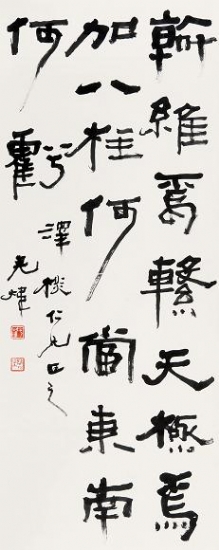 斡維焉繫天極焉
加八柱何當東南
何虧
澤仁兄正之
光煒